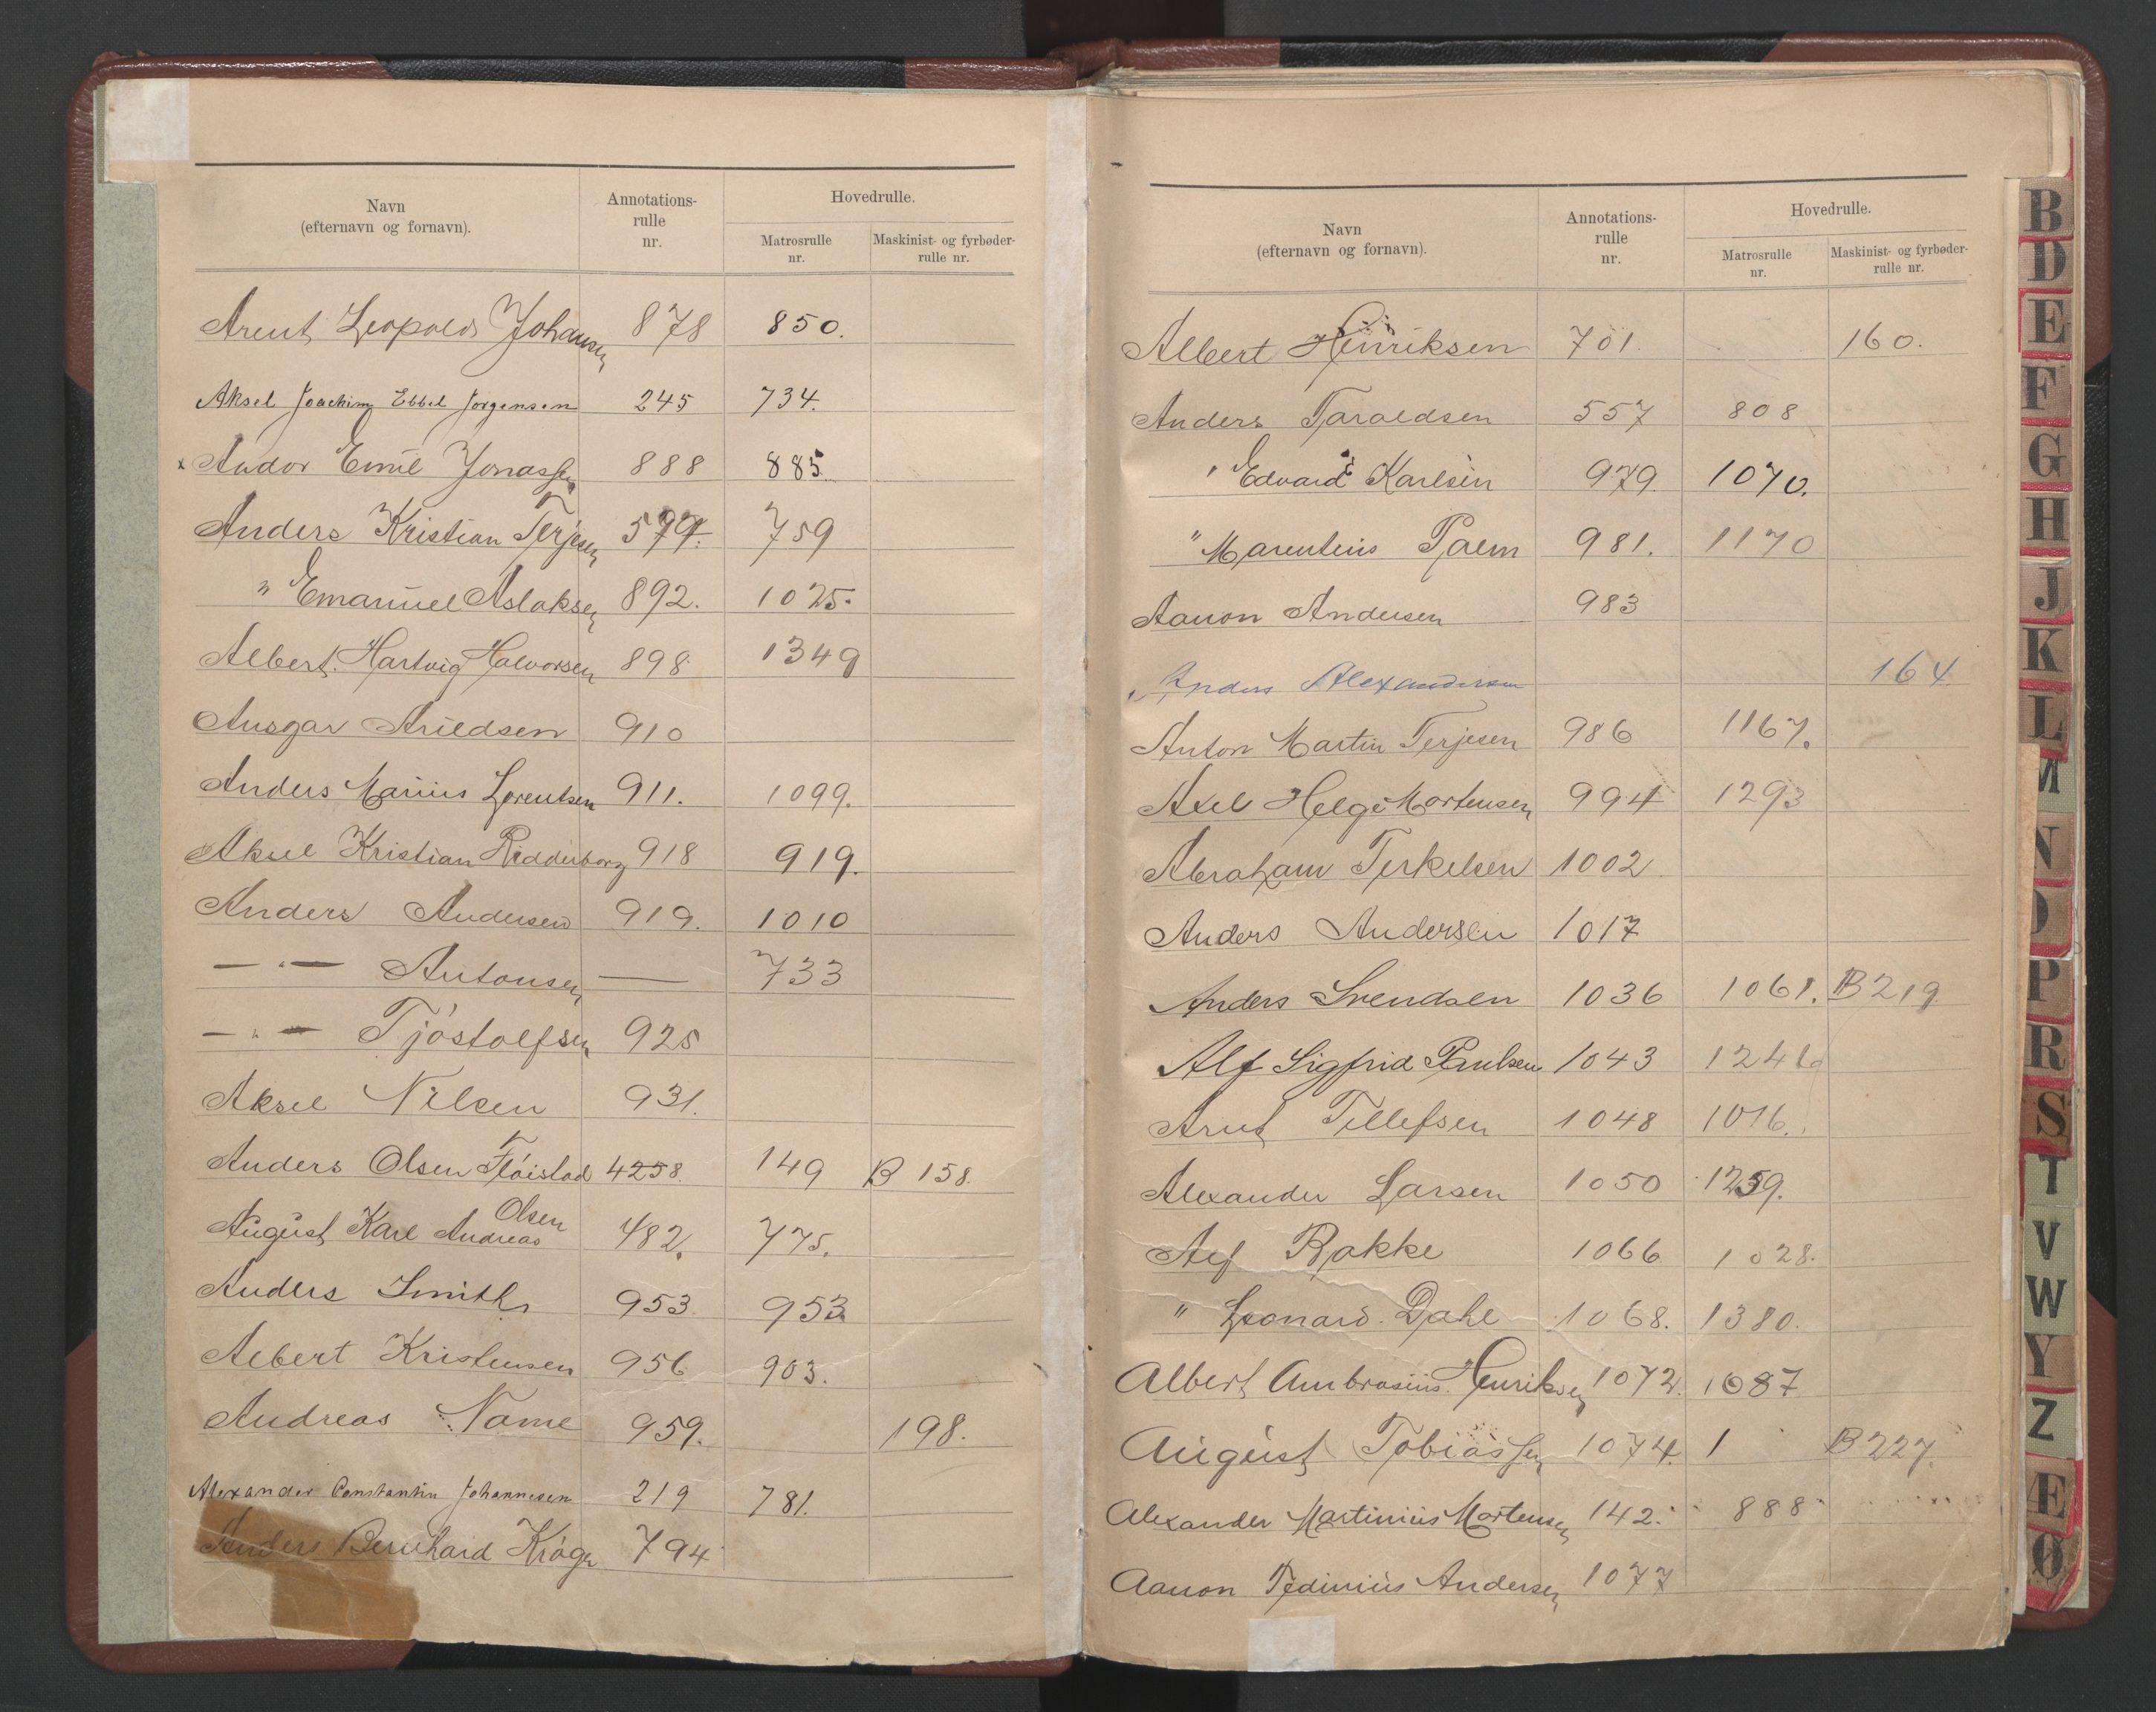 Navn
(efternavn og fornavn).
Annotations-
rulle
nr.
Hovedrulle.
Matrosrulle
nr.
Maskinist- og fyrbøder-
rulle nr.
Arent Leopold Johansen 878 850.
Aksel Joachim Ebbel Jørgensen 245 734.
x Andor Emil Jonassen 888 885.
Anders Kristian Terjesen 579. 759
" Emanuel Aslaksen 892. 1025.
Albert Hartvig Halvorsen 898 1349
Ansgar Arildsen 910
Anders Marius Lorentsen 911. 1099.
Aksel Kristian Ridderborg 918 919.
Anders Andersen 919. 1010
— " — Antonsen — 733
— " — Tjøstolfsen 925
Aksel Nilsen 931.
Anders Olsen Fløistad 4258. 149 B 158.
Olsen
August Karl Andreas 482. 775.
Anders Smith 953. 953.
Albert Kristensen 956 903.
Andreas Name 959. 198.
Alexander Constantin Johannesen 219 781.
Anders Bernhard Krøger 794
Navn
(efternavn og fornavn).
Annotations-
rulle
nr.
Hovedrulle.
Matrosrulle
nr.
Maskinist- og fyrbøder-
rulle nr.
Albert Henriksen 701. 160.
Anders Taraldsen 557 808
" Edvard Karlsen 979. 1070.
" Marentius Palm 981. 1170
Aanon Andersen 983
Anders Alexandersen 164
Anton Martin Terjesen 986 1167.
Axel Helge Mortensen 994 1293
Abraham Terkelsen 1002.
Anders Andersen 1017
Anders Svendsen 1036 1061. B 219.
Alf Sigfrid Paulsen 1043 1246
Arnt Tellefsen 1048 1016.
Alexander Larsen 1050 1259.
Alf Bakke 1066 1028.
" Leonard Dahl 1068. 1380.
Albert Ambrosius Henriksen 1072. 1087
August Tobiassen 1074. 1 B 227.
Alexander Martinius Mortensen 142. 888
Aanon Tedinius Andersen 1077
B
D
E
F
G
H
J
K
L
M
N
O
P
R
S
T
V
W
Y
Z
Æ
Ø